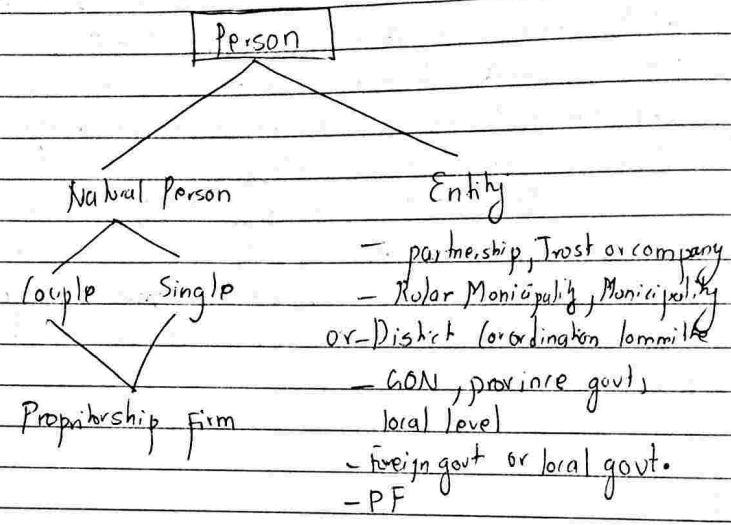 Person
Natural Person
Entity
Couple Single
Propritorship Firm
- partnership, Trust or company
- Rular Monicipality, Municipality
or - District Coordination Committee
- GON, province govt,
local level
- Foreign govt or local govt.
- PF